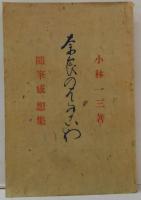 小林一三著
奈良のはたごや
随筆感想集